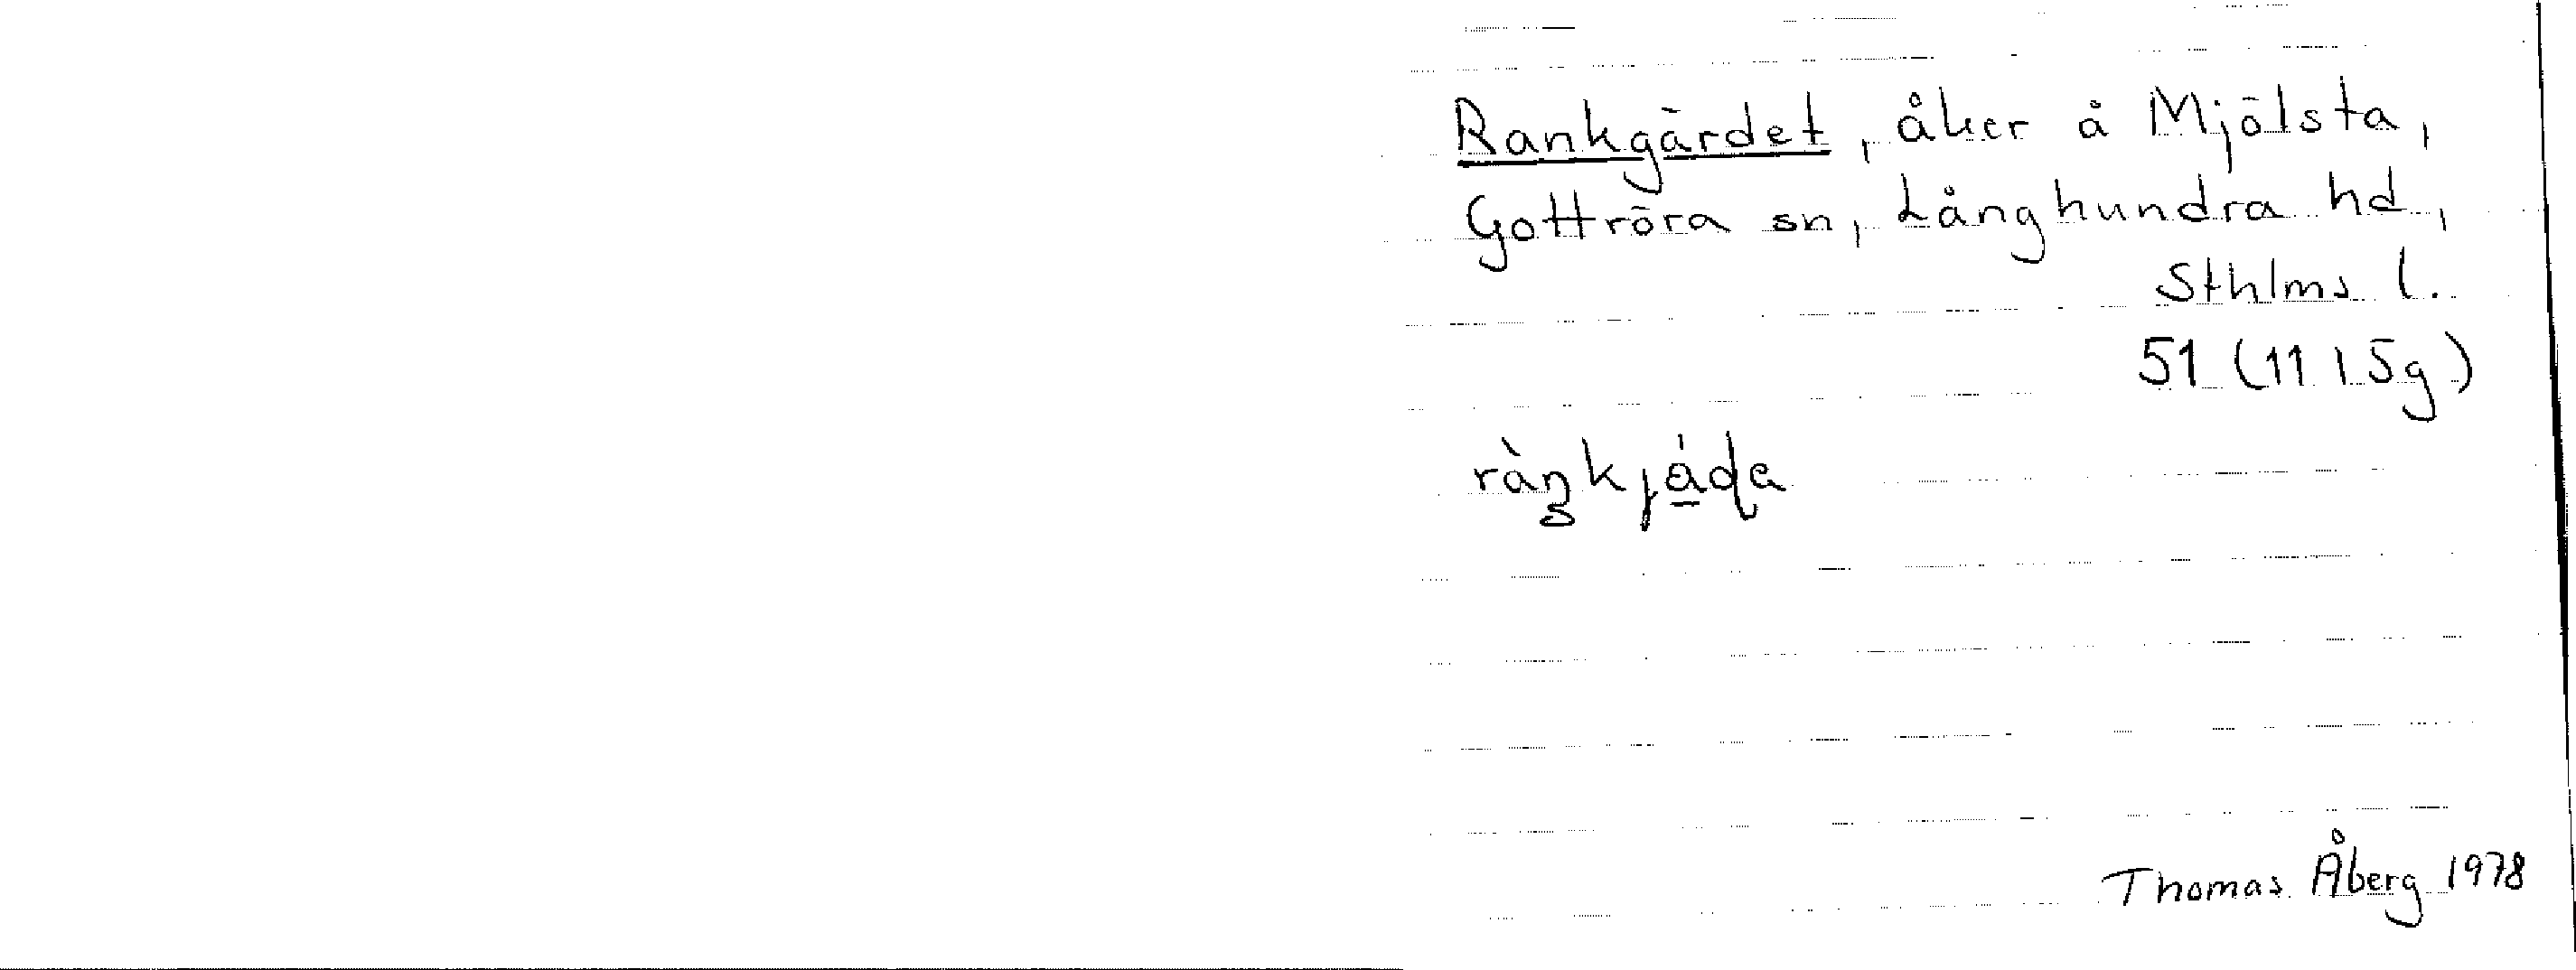 Rankgärdet, åker å Mjölsta,
Gottröra sn, Långhundra hd,
Sthlms l.
51 (11 I 5g)
Thomas Åberg 1978